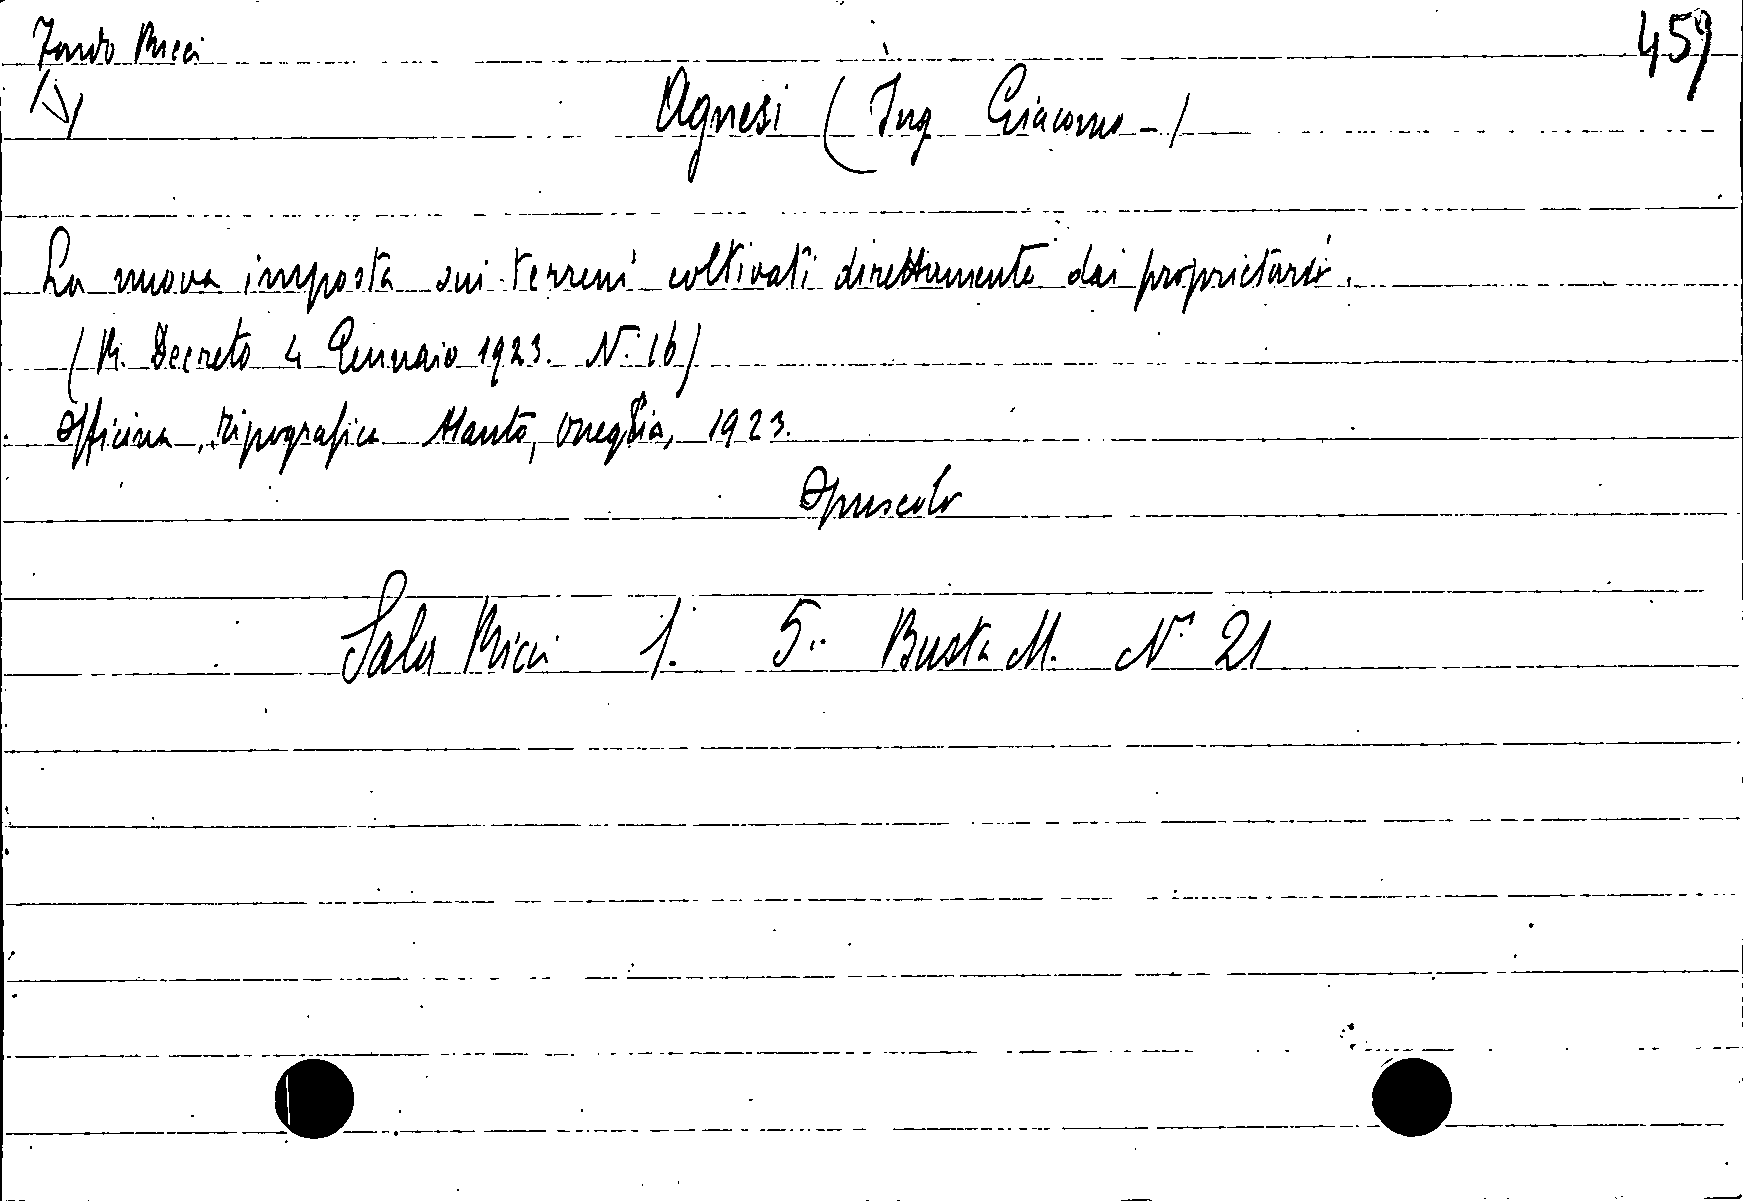 Fondo Ricci
459
Agnesi (Ing Giacomo -)
La nuova imposta sui terreni coltivati direttamente dai proprietari.
(R. Decreto 4 Gennaio 1923. N. 16)
Officina Tipografica Nante, Oneglia, 1923.
Opuscolo
Sala Ricci 1. 5.. Busta M. N. 21